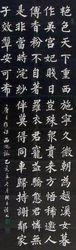 艷色天下重西施寧久微朝為越溪女暮
作吳宮妃賤日豈殊眾貴來方悟稀邀人
傅香粉不自著羅衣君寵益嬌態君憐無
是非當時浣紗伴莫得同車歸持謝鄰家
子效顰安可希